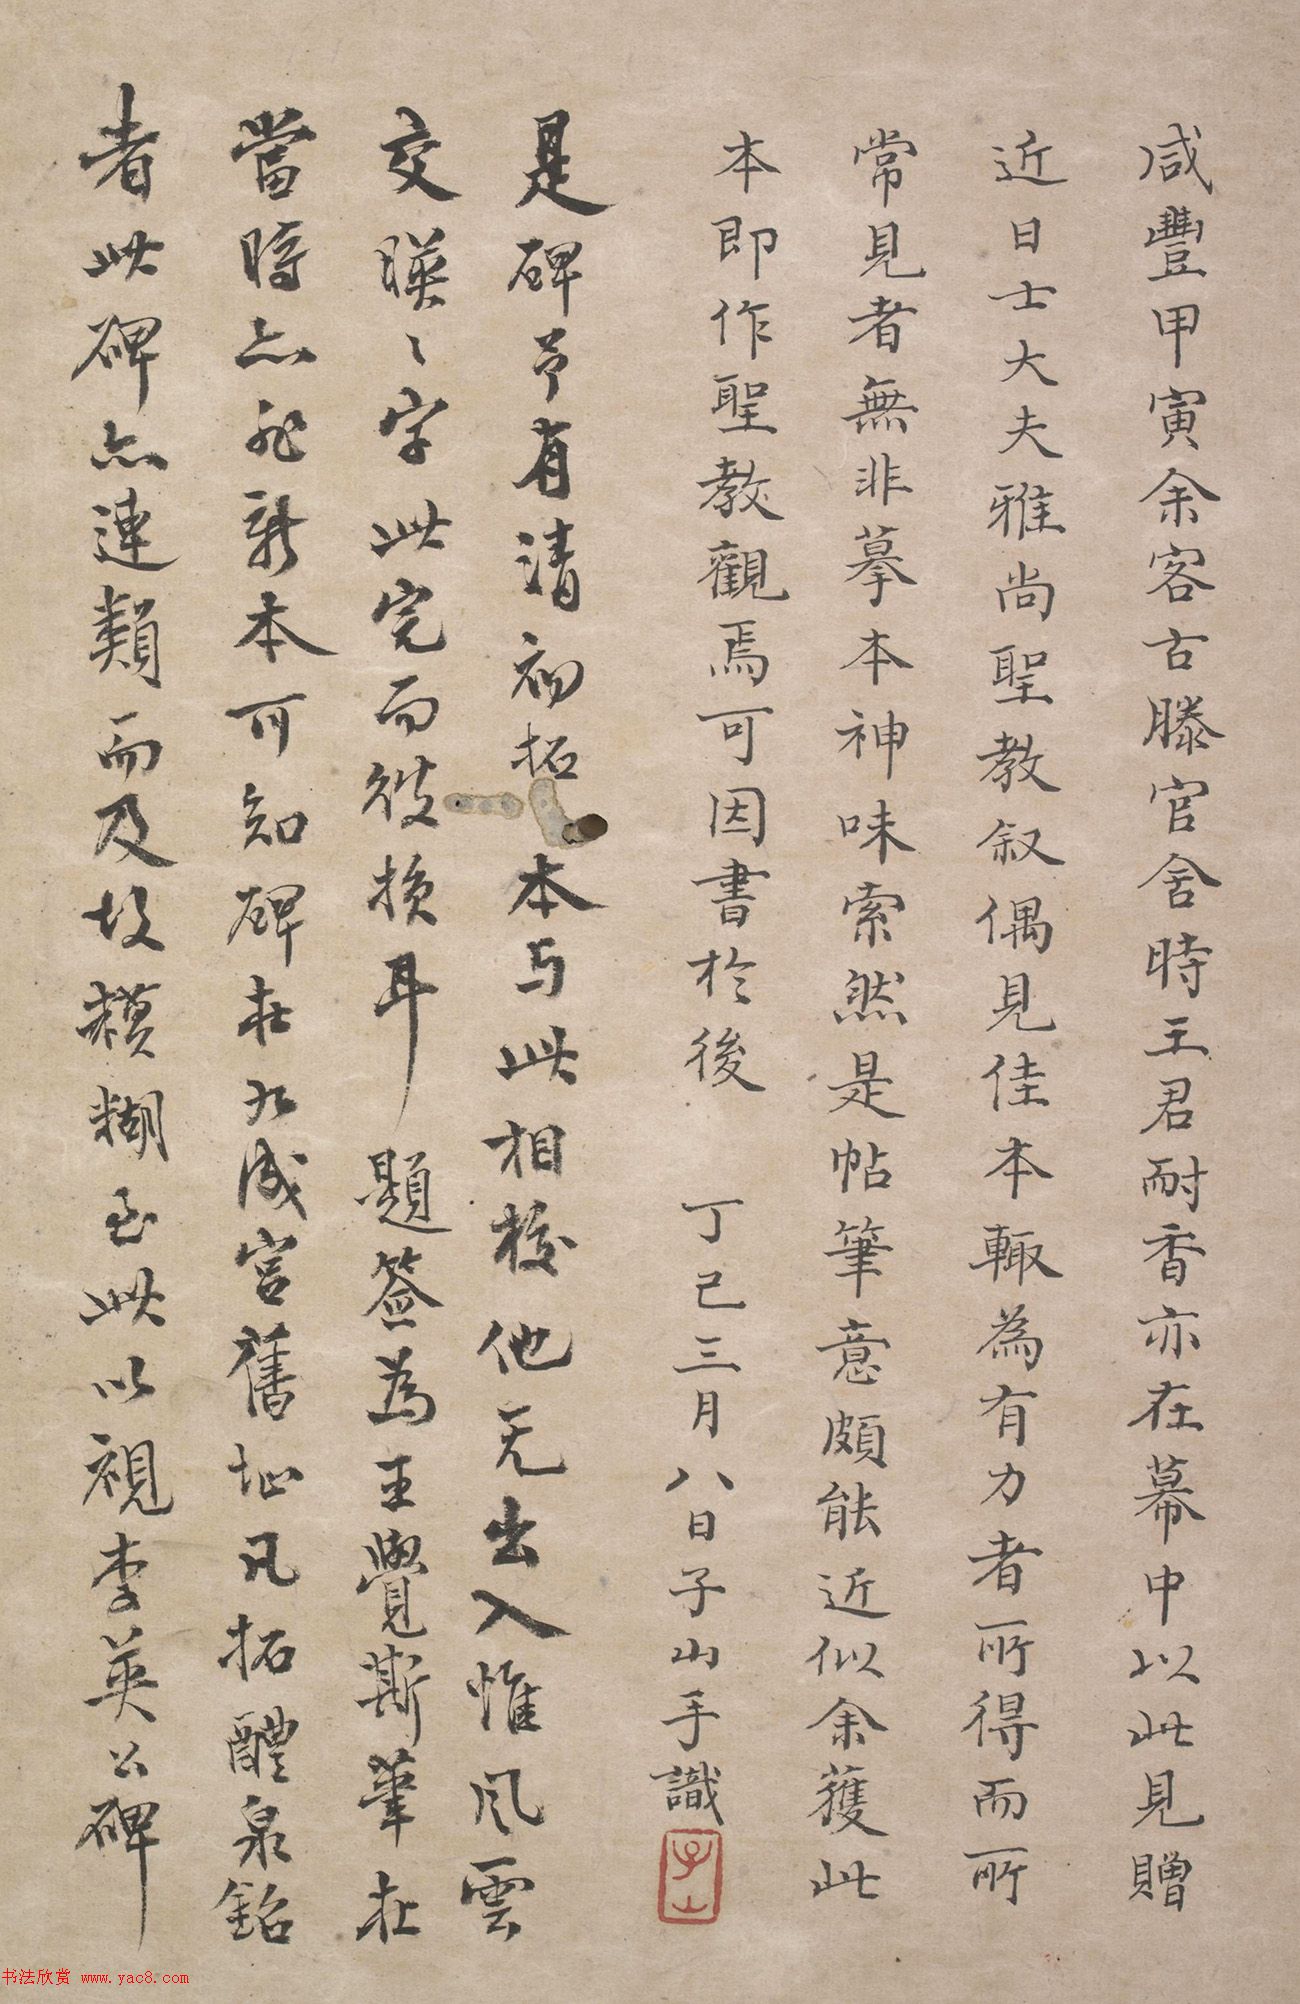 咸豐甲寅余客古滕官舍時王君耐香亦在幕中以此見贈
近日士大夫雅尚聖教叙偶見佳本輙為有力者所得而所
常見者無非摹本神味索然是帖筆意頗能近似余獲此
本即作聖教觀焉可因書於後 丁巳三月八日子山手識
子山
是碑予有清初拓本与此相校他无出入惟风雲
交映々字此完而彼损耳 題签為王覺斯筆在
當時亦非新本可知碑在九成宫舊址凡拓醴泉銘
者此碑亦連類而及故模糊至此以視李英公碑
书法欣赏 www.yac8.com